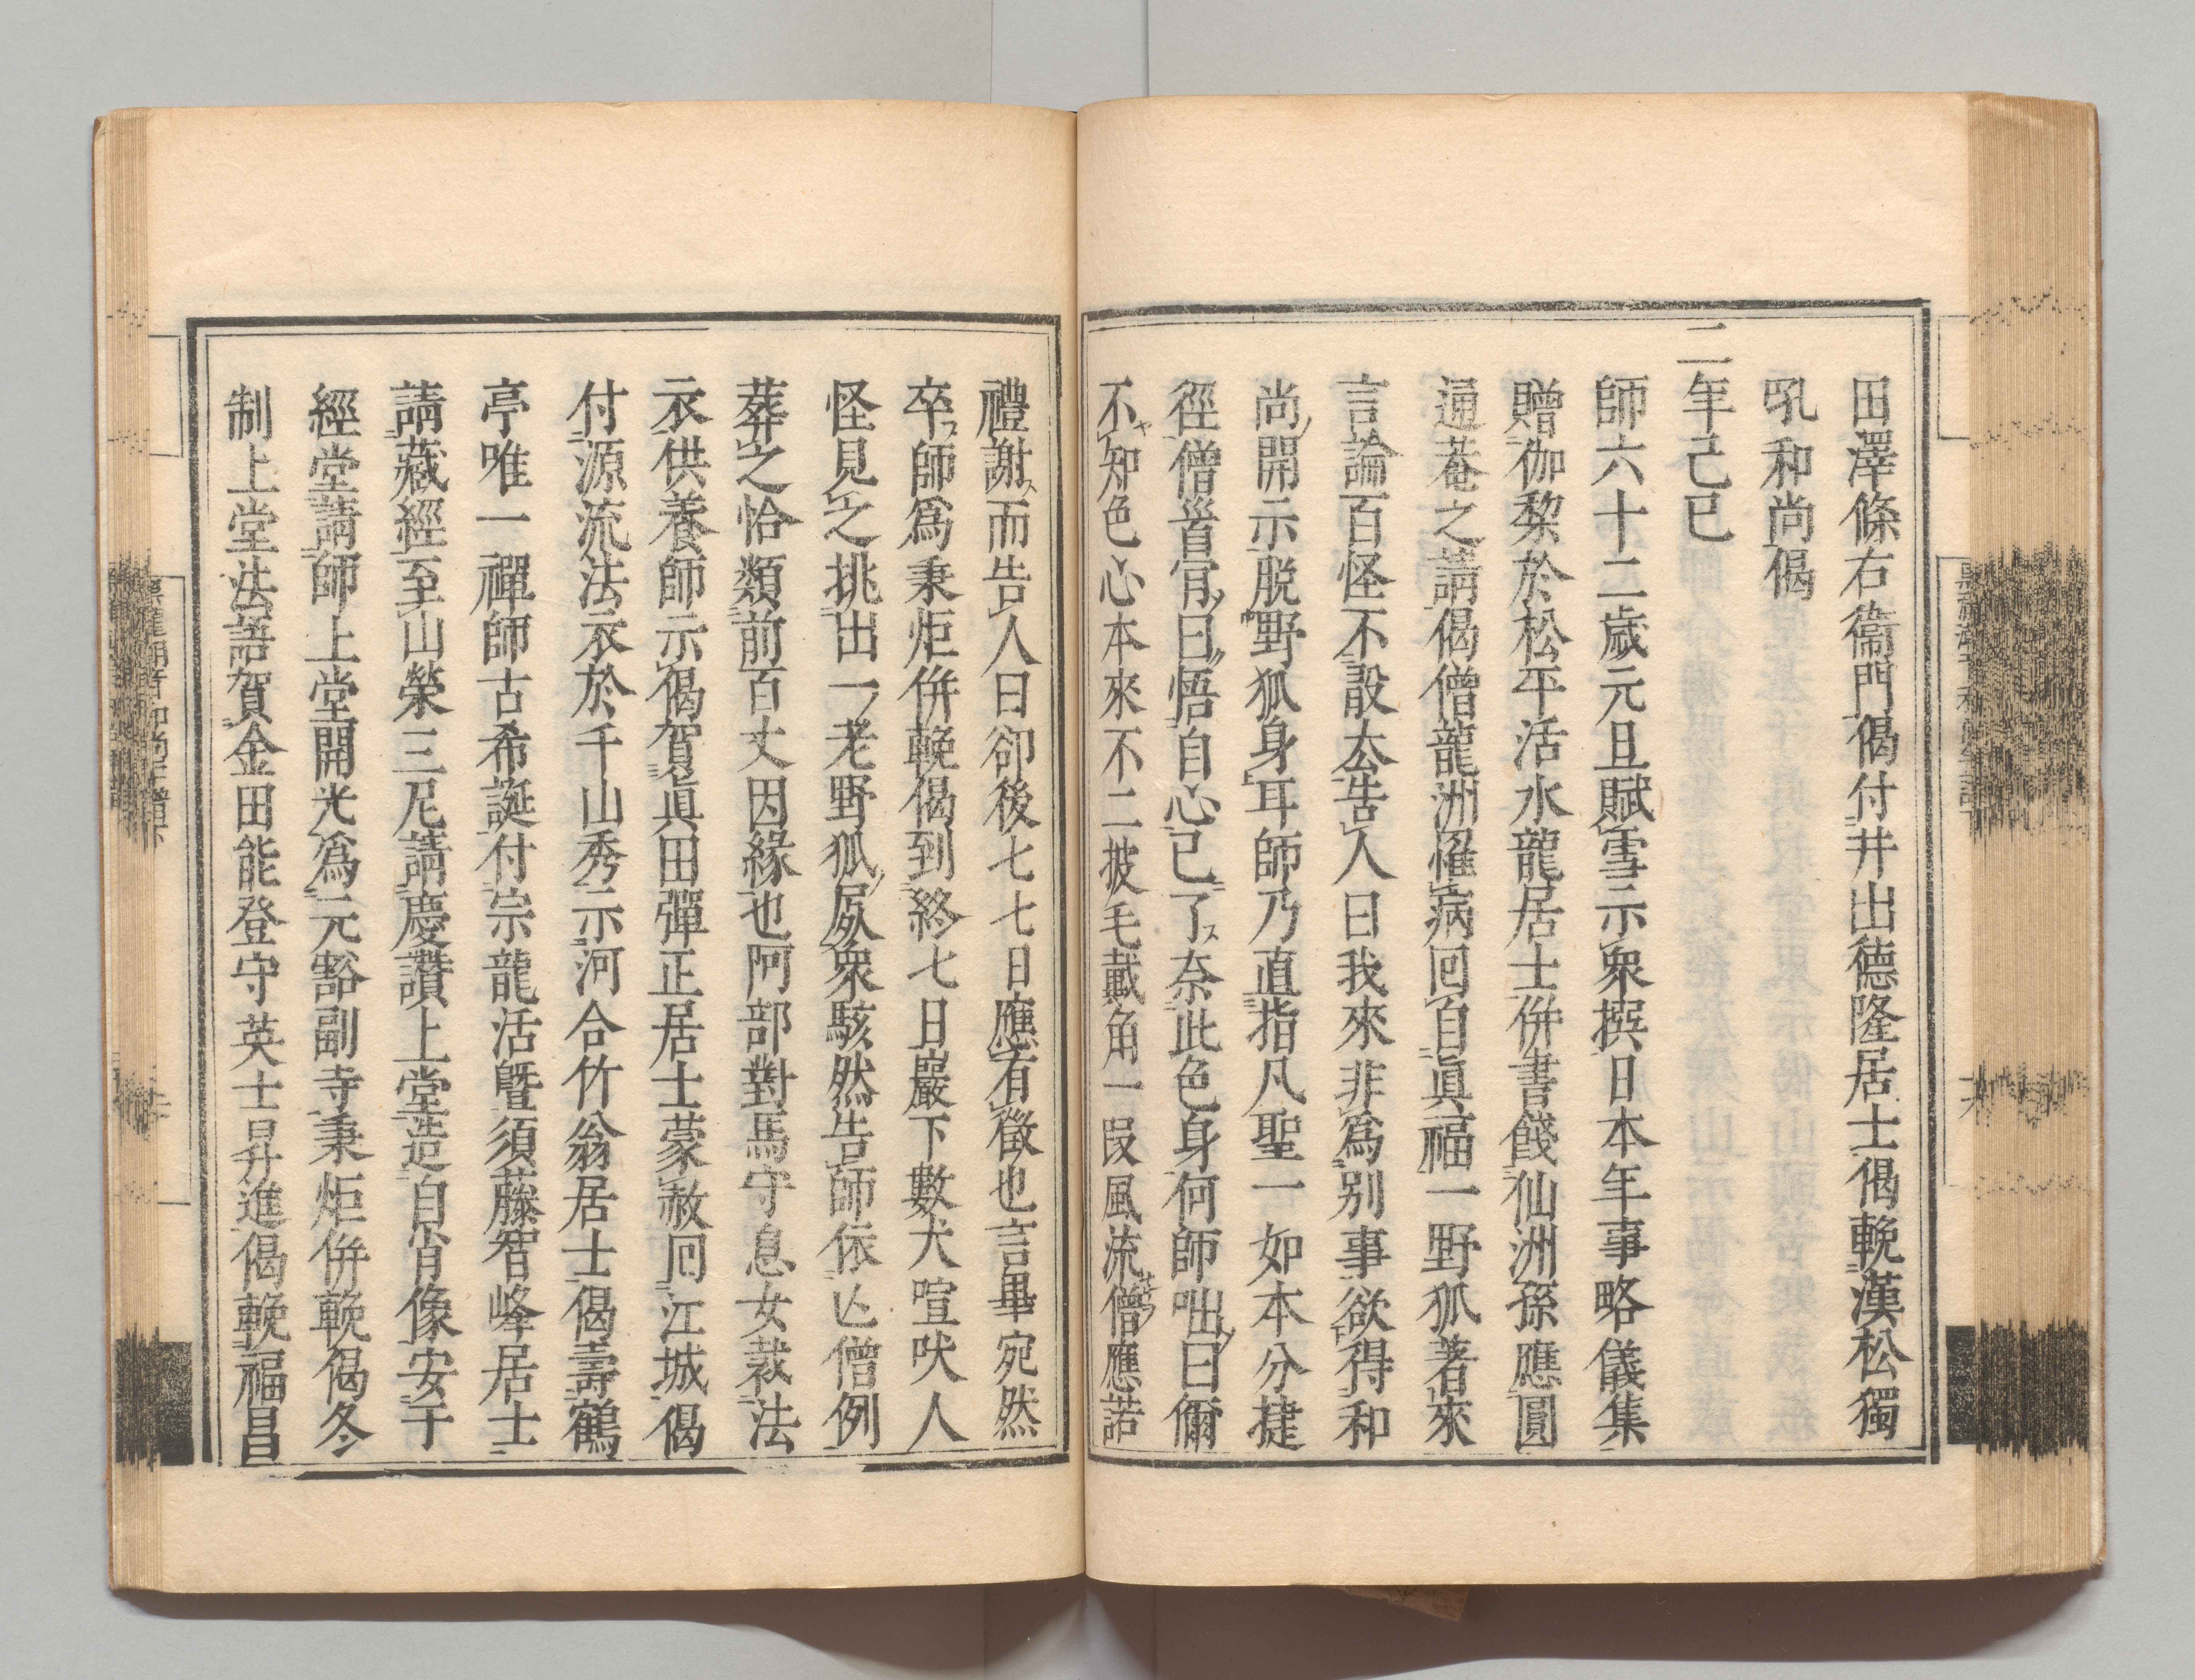 田澤條右衞門偈付井出德隆居士偈輓漢松獨
吼和尚偈
二年己巳
師六十二歲元旦賦雪示衆撰日本年事略儀集
贈伽棃於松平活水龍居士併書餞仙洲孫應圓
通菴之請偈僧龍洲罹病囘自眞福一野狐著來
言論百怪不設厺告人曰我來非爲別事欲得和
尚開示脱野狐身耳師乃直指凡聖一如本分捷
徑僧首肯曰悟自心已了奈此色身何師咄曰爾
不知色心本來不二披毛戴角一叚風流僧應諾
禮謝而告人曰卻後七七日應有徵也言畢宛然
卒師爲秉炬併輓偈到終七日巖下數犬喧吠人
怪見之挑出一老野狐屍衆駭然告師依亾僧例
葬之恰類前百丈因緣也阿部對馬守息女裁法
衣供養師示偈賀眞田彈正居士蒙赦囘江城偈
付源流法衣於千山秀示河合竹翁居士偈壽鶴
亭唯一禪師古希誕付宗龍活曁須藤智峰居士
請藏經至山榮三尼請慶讚上堂造自肖像安于
經堂請師上堂開光爲元豁副寺秉炬併輓偈冬
制上堂法語賀金田能登守英士昇進偈輓福昌